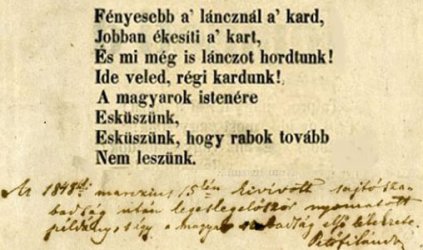 Fényesebb a' láncznál a' kard,
Jobban ékesíti a' kart,
És mi még is lánczot hordtunk!
Ide veled, régi kardunk!
A magyarok istenére
Esküszünk,
Esküszünk, hogy rabok tovább
Nem leszünk.
Az 1848diki marczius 15kén kivívott sajtósza-
badság után legeslegelőször nyomatott
példány, s így a magyar szabadság első lélekzete.
Petőfi Sándor